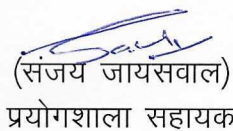 (संजय जायसवाल)
प्रयोगशाला सहायक